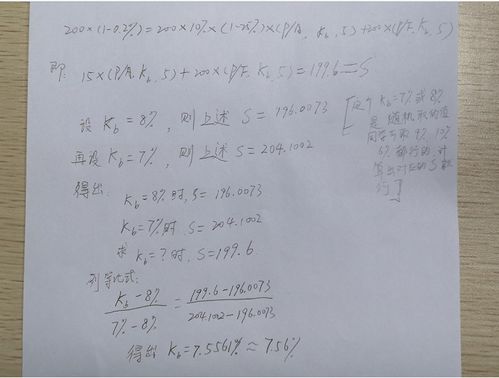 200×(1-0.2%)=200×10%×(1-25%)×(P/A, Kb, 5)+200×(P/F, Kb, 5)
即: 15×(P/A, Kb, 5)+200×(P/F, Kb, 5)=199.6=S
设 Kb=8%, 则上述 S=196.0073
再设 Kb=7%, 则上述 S=204.1002
[这个 Kb=7%或8%
是随机取的值
同学可取 9%
6% 都行的 计
算出对应的 S 就
行]
得出:
Kb=8%时, S=196.0073
Kb=7%时 S=204.1002
求 Kb=?时, S=199.6
列等比式:
Kb-8% / 7%-8% = 199.6-196.0073 / 204.1002-196.0073
得出 Kb=7.5561% ≈ 7.56%